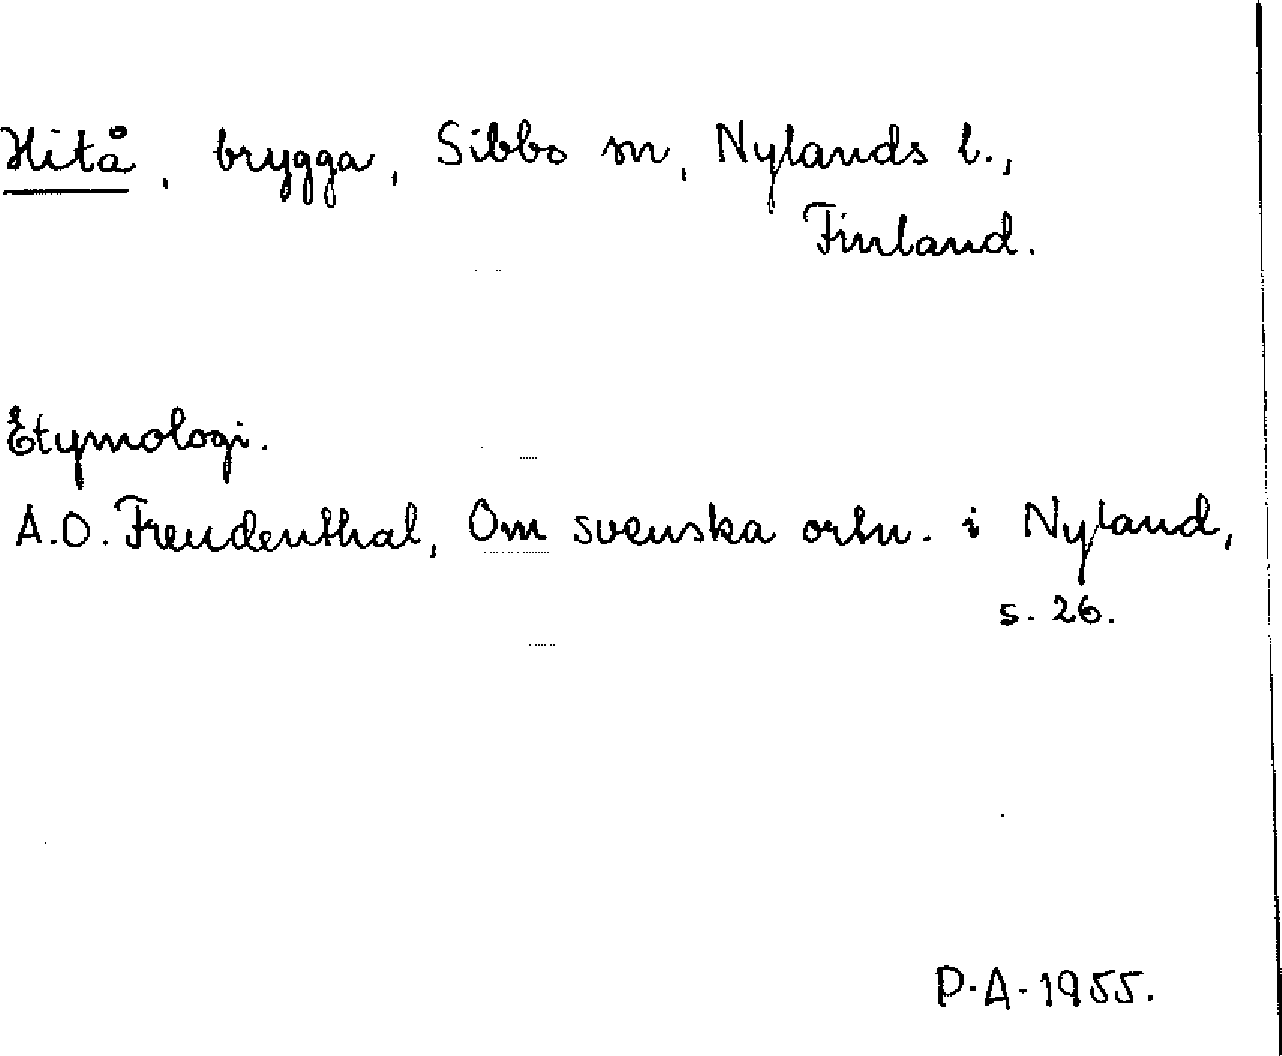 Hitå, brygga, Sibbo sn, Nylands l.,
Finland.
Etymologi.
A.O. Freudenthal, Om svenska ortn. i Nyland,
s. 26.
P.A. 1955.